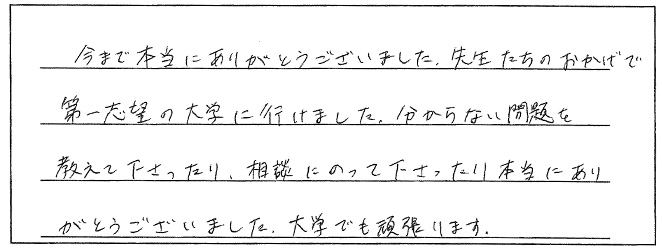 今まで本当にありがとうございました．先生たちのおかげで
第一志望の大学に行けました．分からない問題を
教えて下さったり、相談にのって下さったり本当にあり
がとうございました．大学でも頑張ります．